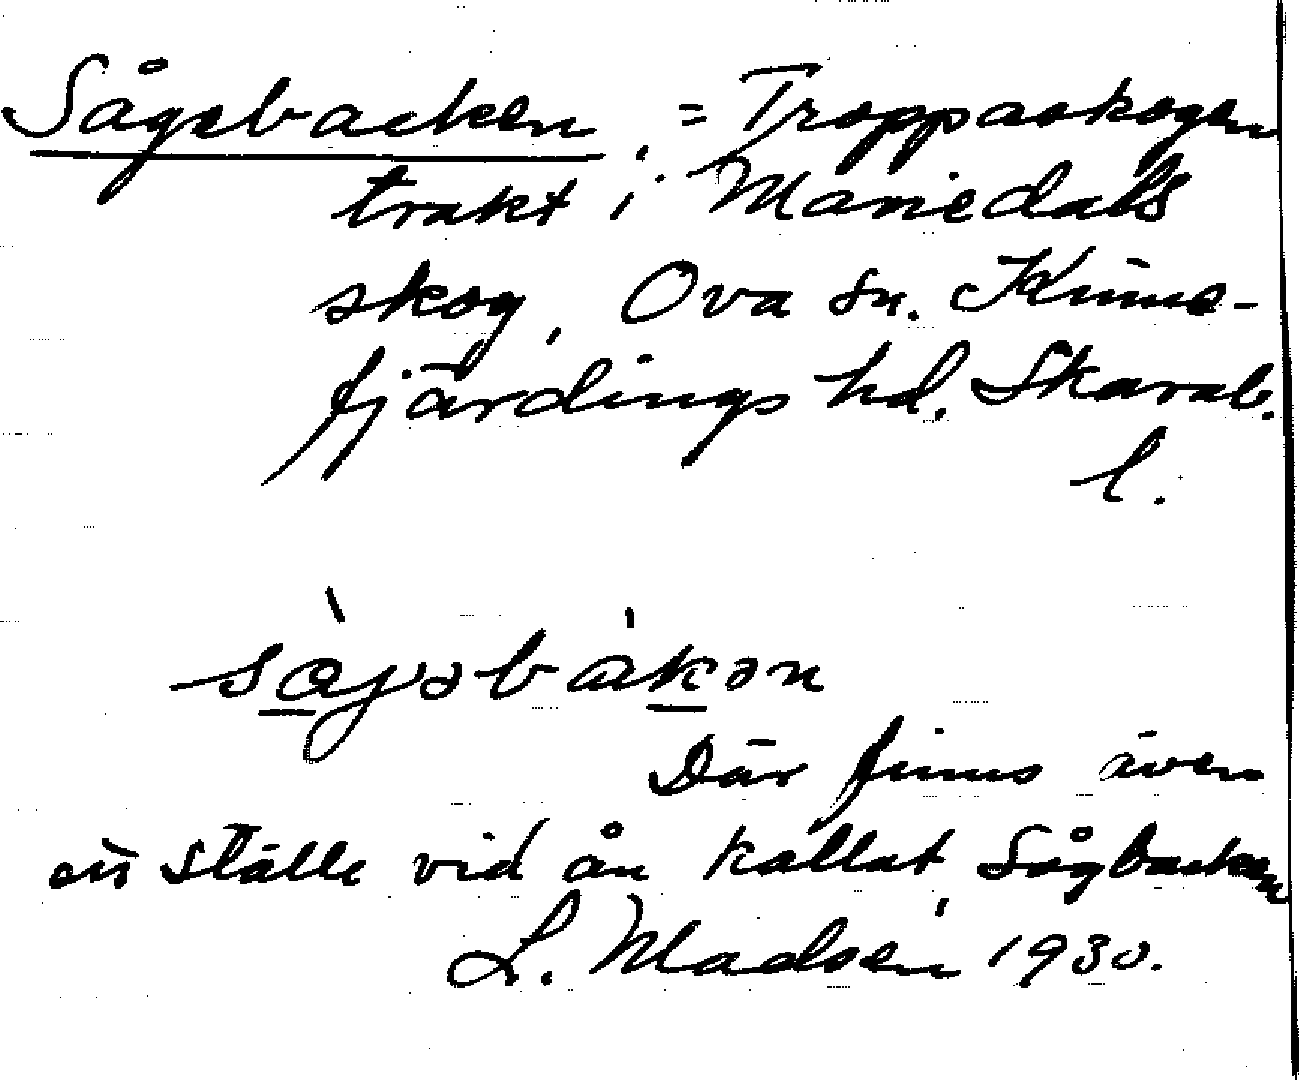 Sågebacken, = Troppaskogen
trakt i Mariedals
skog, Ova sn. Kinne-
fjärdings hd. Skarab.
l.
sàjəbákən
Där finns även
ett ställe vid ån kallat Sågbacken
L. Madsén 1930.